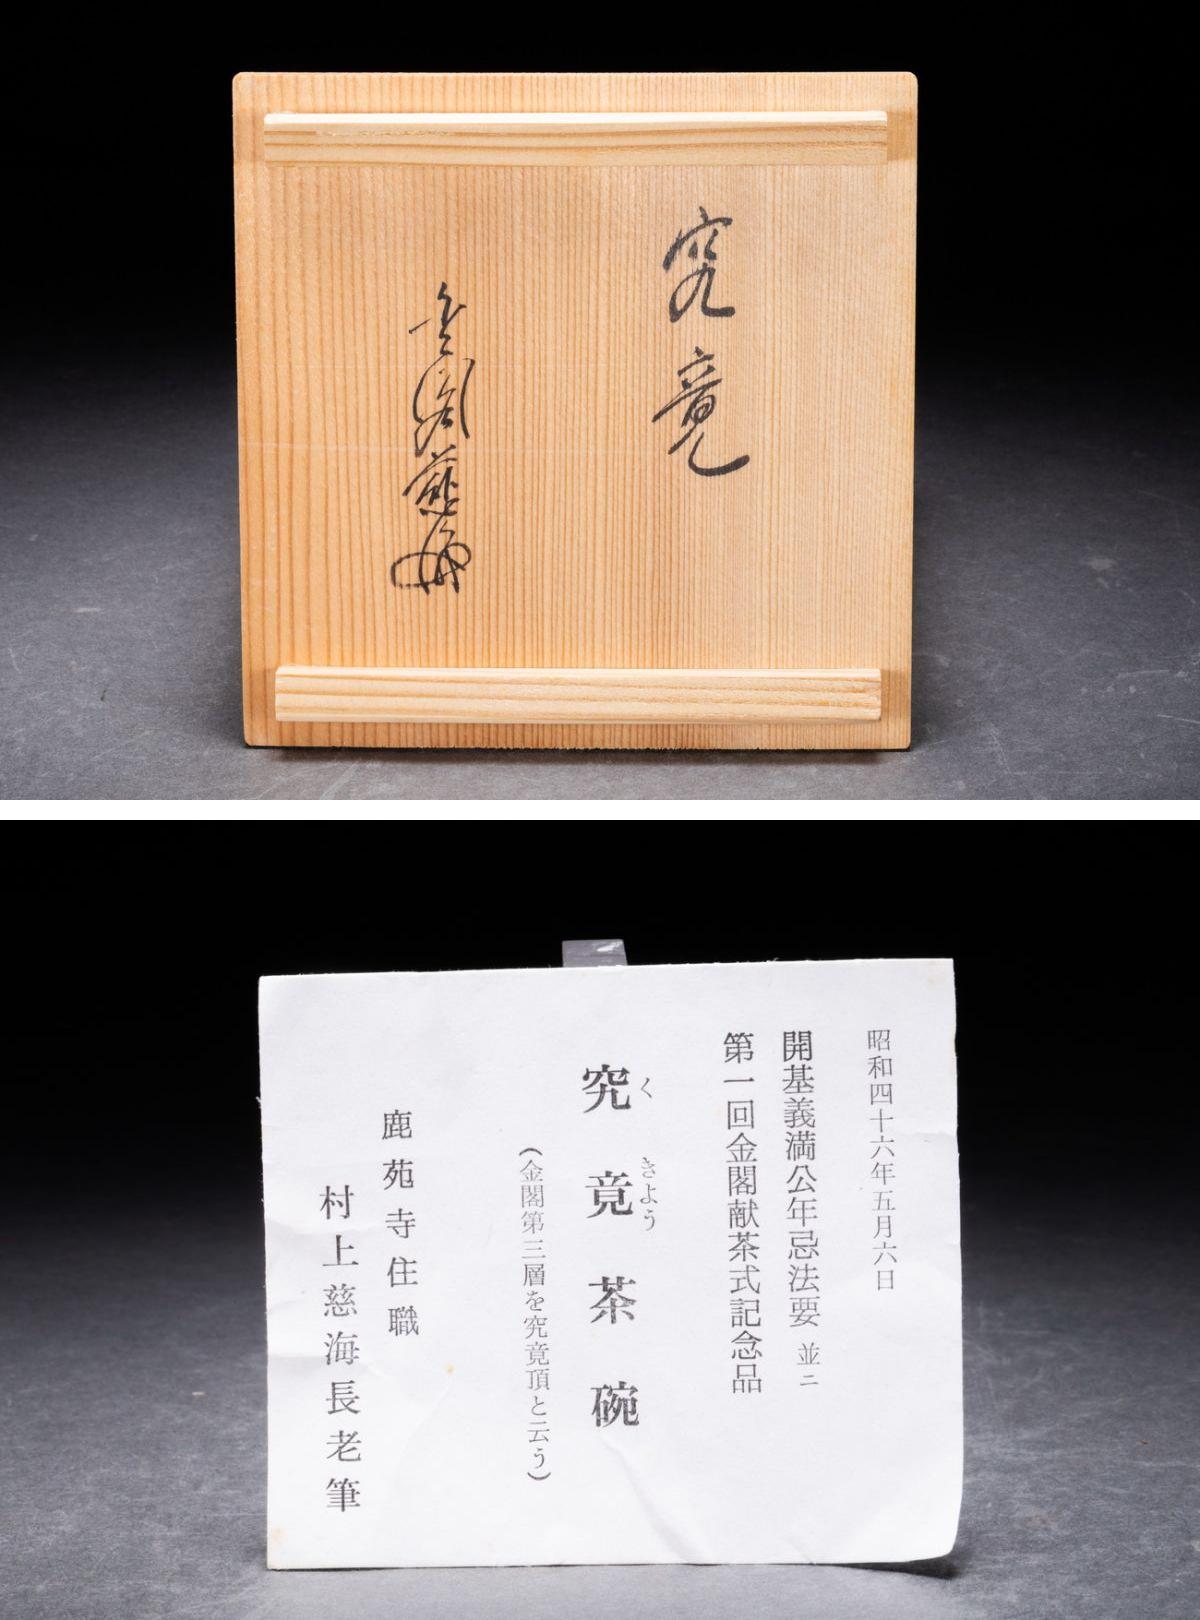 究竟
金閣慈海
昭和四十六年五月六日
開基義満公年忌法要 並ニ
第一回金閣献茶式記念品
究竟茶碗
く きよう
(金閣第三層を究竟頂と云う)
鹿苑寺住職
村上慈海長老筆